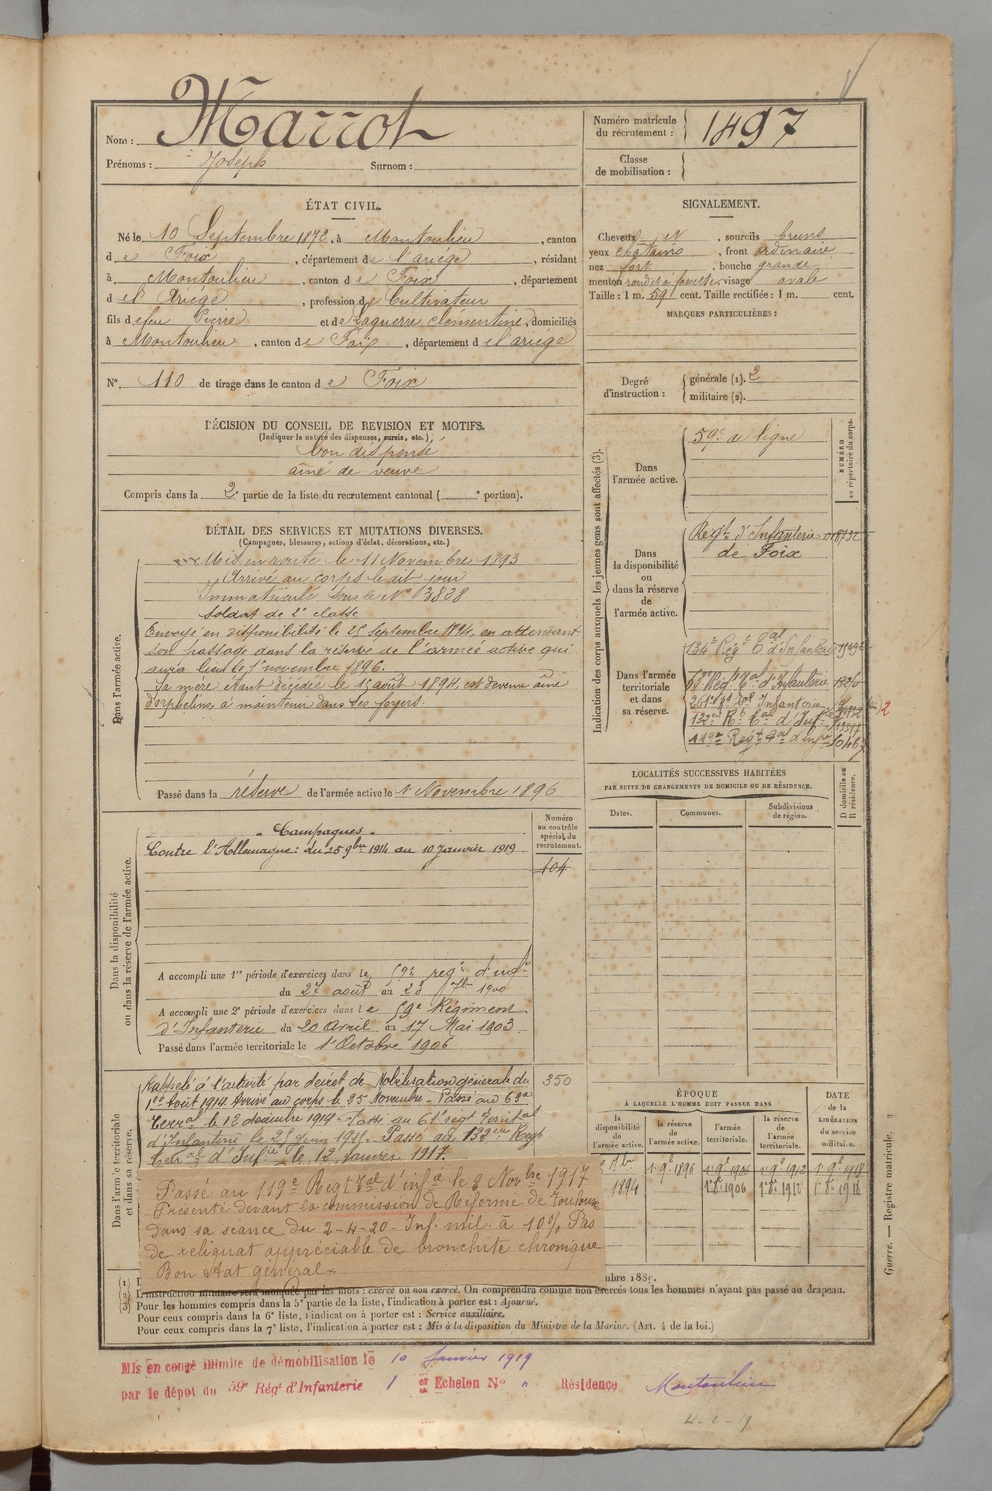 Nom : Marrot
Prénoms : Joseph Surnom :
Numéro matricule
du recrutement : 1497
Classe
de mobilisation :
ÉTAT CIVIL.
Né le 10 Septembre 1872, à Montoulieu, canton
de Foix, département de l'ariège, résidant
à Montoulieu, canton de Foix, département
del Ariège, profession de Cultivateur
fils de feu Pierre et de Laguerre Clémentine, domiciliés
à Montoulieu, canton de Foix, département de l'ariège
N° 110 de tirage dans le canton de Foix
DÉCISION DU CONSEIL DE REVISION ET MOTIFS.
(Indiquer la nature des dispenses, sursis, etc.)
bon dispensé
aîné de veuve
Compris dans la 2e partie de la liste du recrutement cantonal ( e portion).
SIGNALEMENT.
Cheveux et, sourcils bruns
yeux chatains, front ordinaire
nez fort, bouche grande
menton rond à fossette, visage ovale
Taille : 1 m. 591 cent. Taille rectifiée : 1 m. cent.
MARQUES PARTICULIÈRES :
Degré
d'instruction :
générale (1). 2
militaire (2).
DÉTAIL DES SERVICES ET MUTATIONS DIVERSES.
(Campagnes, blessures, actions d'éclat, décorations, etc.)
Dans l'armée active.
Mis en route le 11 Novembre 1893
Arrivé au corps le dit jour
Immatriculé sous le N° 3838
Soldat de 2e classe
Envoyé en disponibilité le 25 septembre 1894, en attendant
son passage dans la réserve de l'armée active qui
aura lieu le 1er novembre 1896.
Sa mère étant décédée le 15 août 1894, est devenu aîné
d'orphelins, à maintenir dans ses foyers.
Passé dans la réserve de l'armée active le 1 Novembre 1896
Indication des corps auxquels les jeunes gens sont affectés (3).
NUMÉRO
au répertoire du corps.
Dans
l'armée active.
59e de ligne
Dans
la disponibilité
ou
dans la réserve
de
l'armée active.
Régt d'Infanterie
de Foix
Dans l'armée
territoriale
et dans
sa réserve.
134e Régt Tal d'Infanterie
63e Régt Tal d'Infanterie
261e Rt Tal Infanterie
132e Rt Tal d'Infie
119e Régt Tal d'infie
LOCALITÉS SUCCESSIVES HABITÉES
PAR SUITE DE CHANGEMENTS DE DOMICILE OU DE RÉSIDENCE.
D domicile ou
R résidence.
Dates. Communes. Subdivisions
de région.
Dans la disponibilité
ou dans la réserve de l'armée active.
Numéro
au contrôle
spécial du
recrutement.
104
Campagnes.
Contre l'Allemagne : du 25 9bre 1914 au 10 Janvier 1919
A accompli une 1re période d'exercices dans le 59e régt d'infie
du 27 août au 23 7bre 1900
A accompli une 2e période d'exercices dans le 59e Régiment
d'Infanterie du 20 Avril au 17 Mai 1903.
Passé dans l'armée territoriale le 1er Octobre 1906
Dans l'armée territoriale
et dans sa réserve.
350
Rappelé à l'activité par décret de Mobilisation générale du
1er Août 1914. Arrivé au corps le 25 Novembre. Passé au 63e
Terral le 12 décembre 1914. Passé au 61e régt Territal
d'Infanterie le 25 Juin 1915. Passé au 132ème Régt
terral d'Infie le 12 Janvier 1917.
Passé au 119e Régt Tal d'infie le 8 Novbre 1917
Présenté devant la commission de Réforme de Toulouse
dans sa séance du 2-4-20. Inf. mil. à 10% Pas
de reliquat appréciable de bronchite chronique
Bon état général.
ÉPOQUE
À LAQUELLE L'HOMME DOIT PASSER DANS
la
disponibilité
de
l'armée active.
la réserve
de
l'armée active.
l'armée
territoriale.
la réserve
de
l'armée
territoriale.
DATE
de la
LIBÉRATION
du service
militaire.
1er 9b 1896 1er 9b 1906 1er 9b 1912 1er 9b 1918
1894 1er 8b 1906 1er 8b 1912 1er 8b 1918
Guerre. — Registre matricule.
(2) L'instruction militaire sera indiquée par les mots : exercé ou non exercé. On comprendra comme non exercés tous les hommes n'ayant pas passé au drapeau.
(3) Pour les hommes compris dans la 5e partie de la liste, l'indication à porter est : Ajourné.
Pour ceux compris dans la 6e liste, l'indication à porter est : Service auxiliaire.
Pour ceux compris dans la 7e liste, l'indication à porter est : Mis à la disposition du Ministre de la Marine. (Art. 4 de la loi.)
Mis en congé illimité de démobilisation le 10 Janvier 1919
par le dépôt du 59e Régt d'Infanterie 1er Echelon N° " Résidence Montoulieu